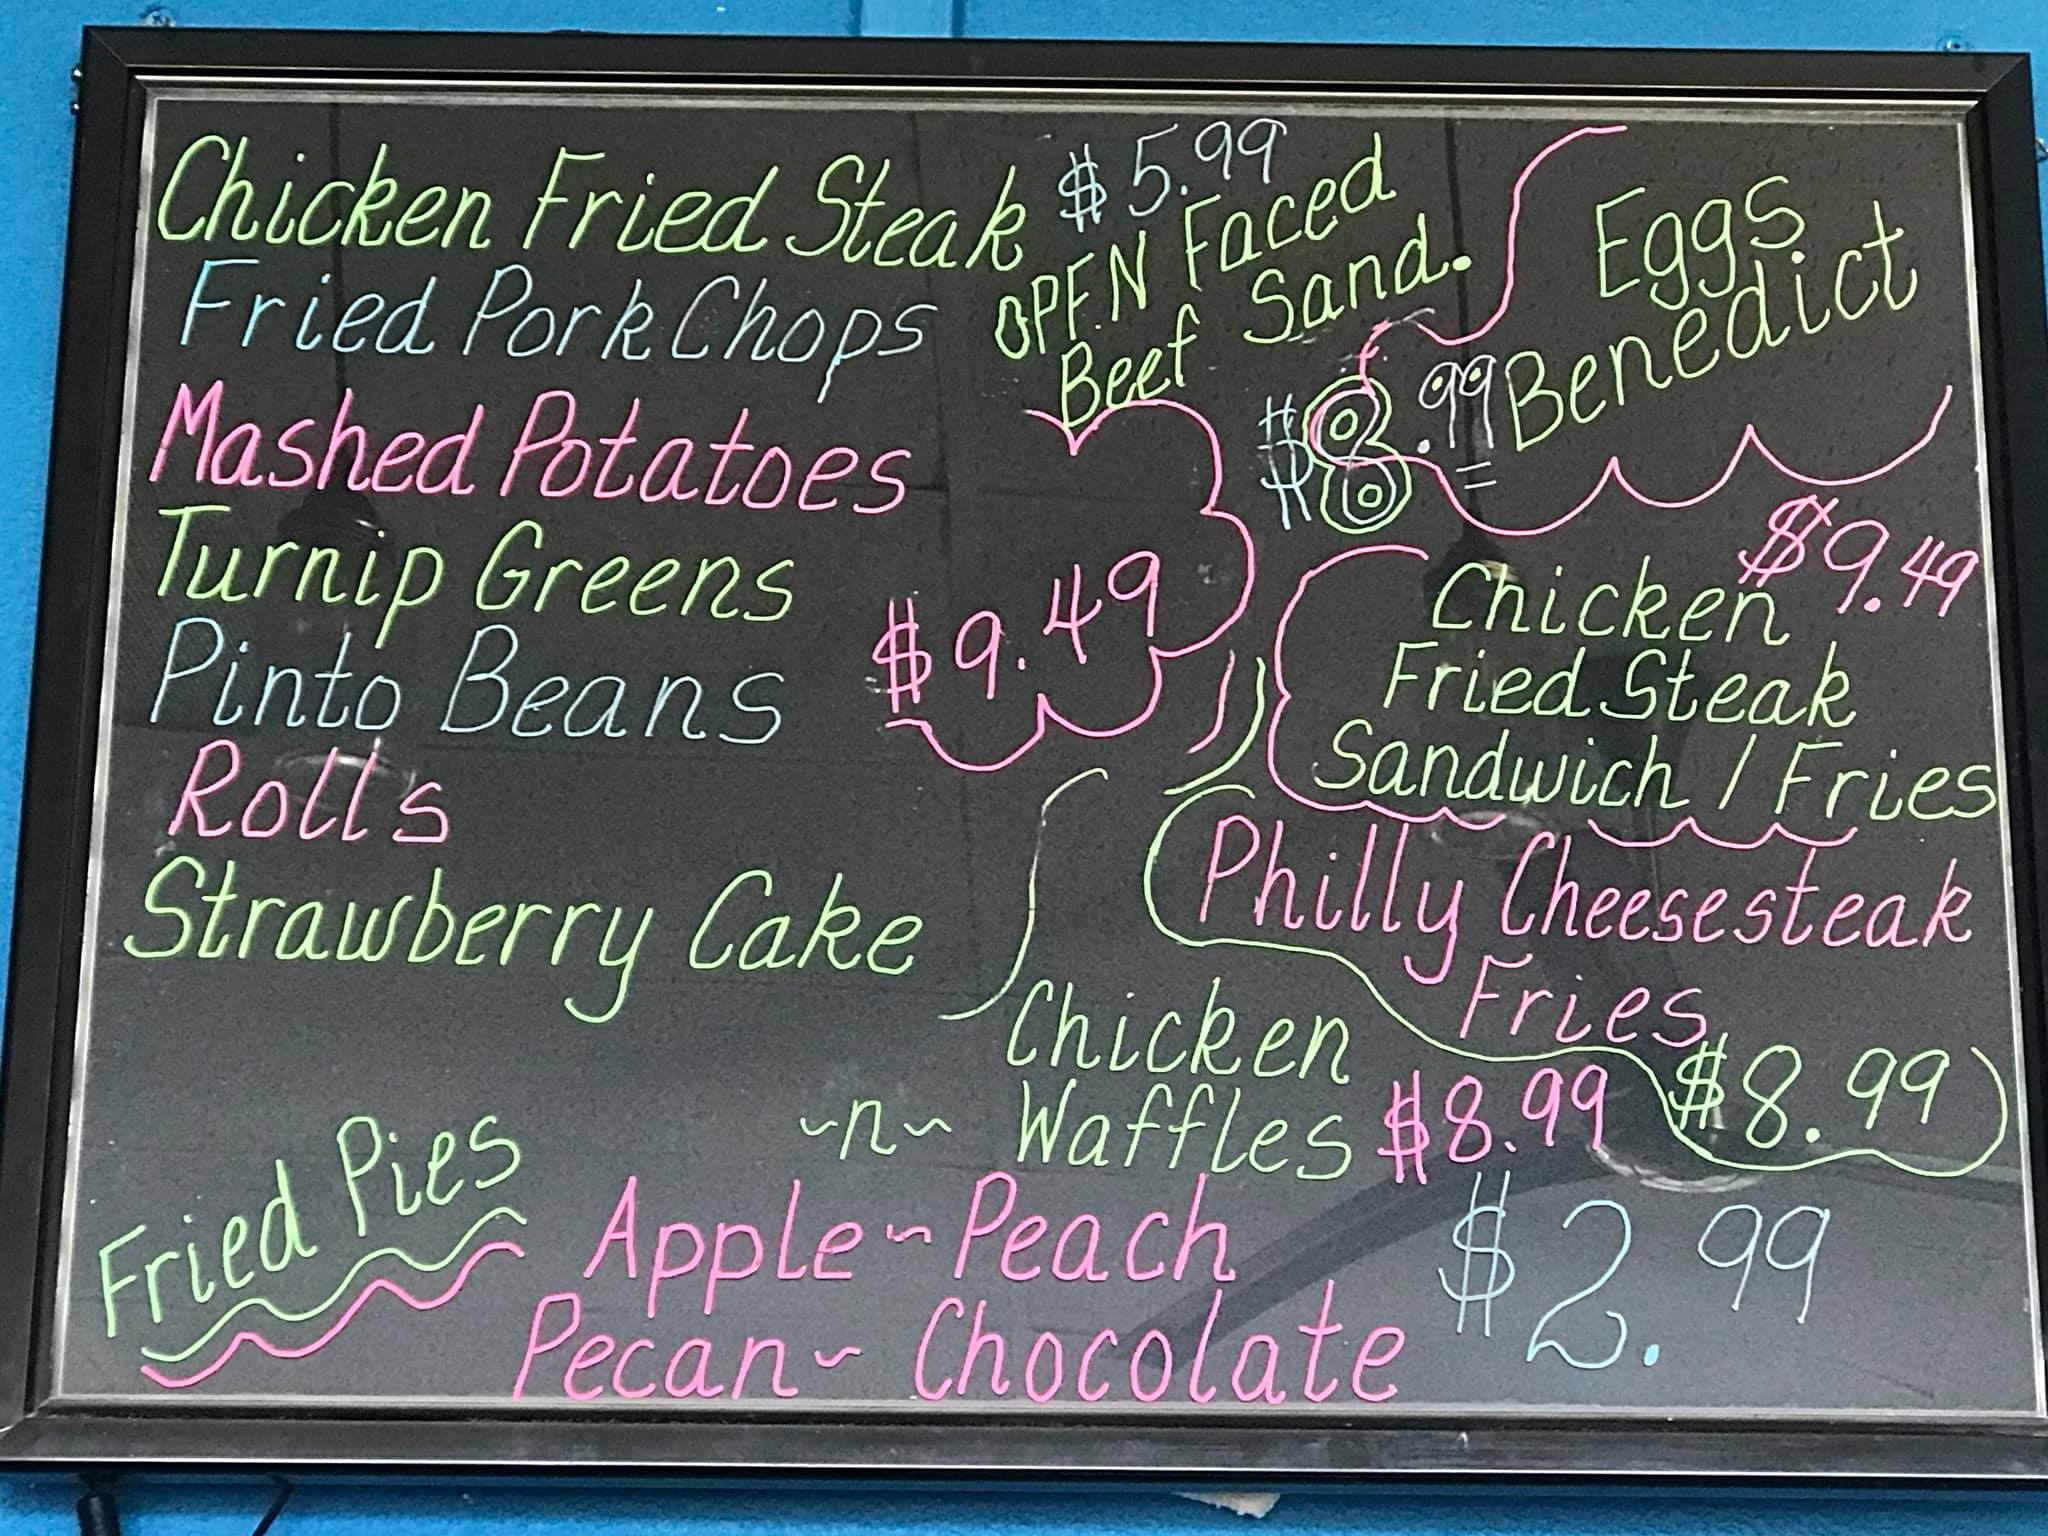 Chicken Fried Steak
Fried Pork Chops
Mashed Potatoes
Turnip Greens
Pinto Beans
Rolls
Strawberry Cake
$9.49
$5.99
OPEN Faced
Beef Sand.
Eggs
Benedict
$8.99
$9.49
Chicken
Fried Steak
Sandwich / Fries
Philly Cheesesteak
Fries
$8.99
Chicken
~n~ Waffles $8.99
Fried Pies
Apple ~ Peach
Pecan ~ Chocolate
$2.99